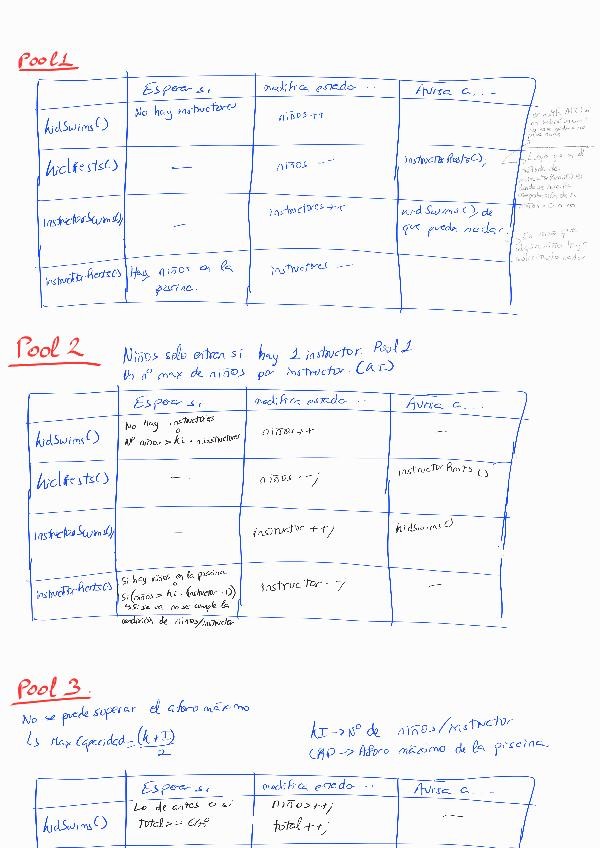 Pool1
Espera si modifica estado... Avisa a...
kidSwims() No hay instructores niños++
kidRests() — niños -- instructorRests(),
instructorSwims() — instructores++ kidSwims(), de
que pueda nadar.
instructorRests() Hay niños en la instructores --
piscina.
Pool 2 Niños solo entran si hay 1 instructor. Pool 1
Un nº max de niños por instructor. (
Espera si modifica estado.. Avisa a...
kidSwims() No hay instructores niños++ --
o
Nº niños >= ki · ninstructores
kidRests() -- niños --; instructorRests()
instructorSwims() - instructor ++; kidSwims()
instructorRests() Si hay niños en la piscina instructor --; --
o
Si (niños > ki · (instructor - 1))
↳ Si se va no se cumple la
condición de niños/instructor
Pool 3.
No se puede superar el aforo máximo
↳ Max Capacidad = (K+I)
2
KI → Nº de niños/instructor
CAP → Aforo máximo de la piscina.
Espera si modifica estado... Avisa a...
kidSwims() Lo de antes o si niños++; ---
total == CAP total++;